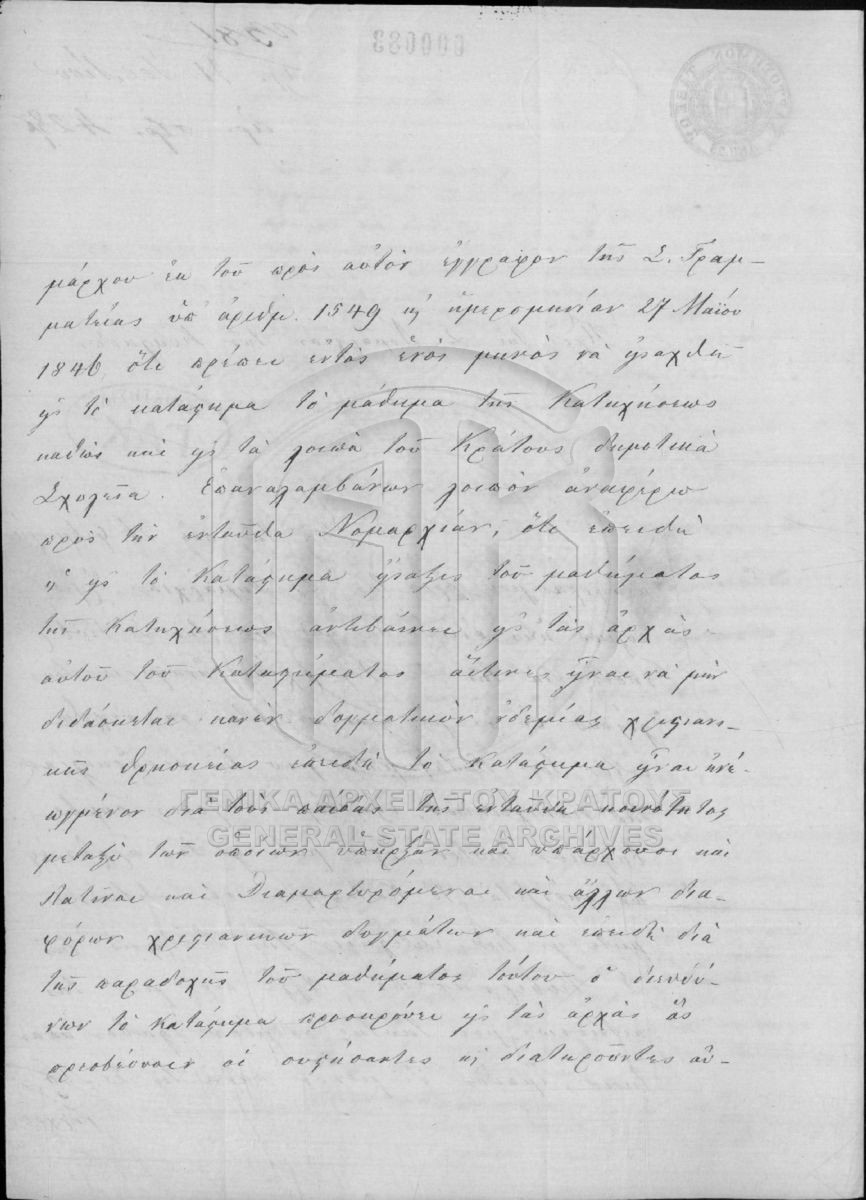 000083
μάρχου ἐκ τοῦ πρὸς αὐτὸν ἐγγράφου τῆς Σ. Γραμ-
ματείας ὑπ' ἀριθμ. 1549 κ ἡμερομηνίαν 27 Μαΐου
1846, ὅτι πρέπει ἐντὸς ἑνὸς μηνὸς νὰ εἰσαχθῇ
εἰς τὸ κατάστημα τὸ μάθημα τῆς Κατηχήσεως
καθὼς καὶ εἰς τὰ λοιπὰ τοῦ Κράτους δημοτικὰ
Σχολεῖα. Ἐπαναλαμβάνων λοιπὸν ἀναφέρω
πρὸς τὴν ἐνταῦθα Νομαρχίαν, ὅτι ἐπειδὴ
ἡ εἰς τὸ Κατάστημα εἴσαξις τοῦ μαθήματος
τῆς Κατηχήσεως ἀντιβαίνει εἰς τὰς ἀρχὰς
αὐτοῦ τοῦ Καταστήματος αἵτινες εἶναι νὰ μὴν
διδάσκεται κανὲν δογματικὸν οὐδεμιᾶς χριστιανι-
κῆς θρησκείας ἐπειδὴ τὸ κατάστημα εἶναι ἀνε-
ῳγμένον διὰ τοὺς παῖδας τῆς ἐνταῦθα κοινότητος
μεταξὺ τῶν ὁποίων ὑπῆρξαν καὶ ὑπάρχουσι καὶ
Λατῖναι καὶ Διαμαρτυρόμεναι καὶ ἄλλων δια-
φόρων χριστιανικῶν δογμάτων καὶ ἐπειδὴ διὰ
τῆς παραδοχῆς τοῦ μαθήματος τούτου ὁ διευθύ-
νων τὸ κατάστημα προσκρούει εἰς τὰς ἀρχὰς ἃς
πρεσβεύουσιν οἱ συστήσαντες κ διατηροῦντες αὐ-
ΓΕΝΙΚΑ ΑΡΧΕΙΑ ΤΟΥ ΚΡΑΤΟΥΣ
GENERAL STATE ARCHIVES